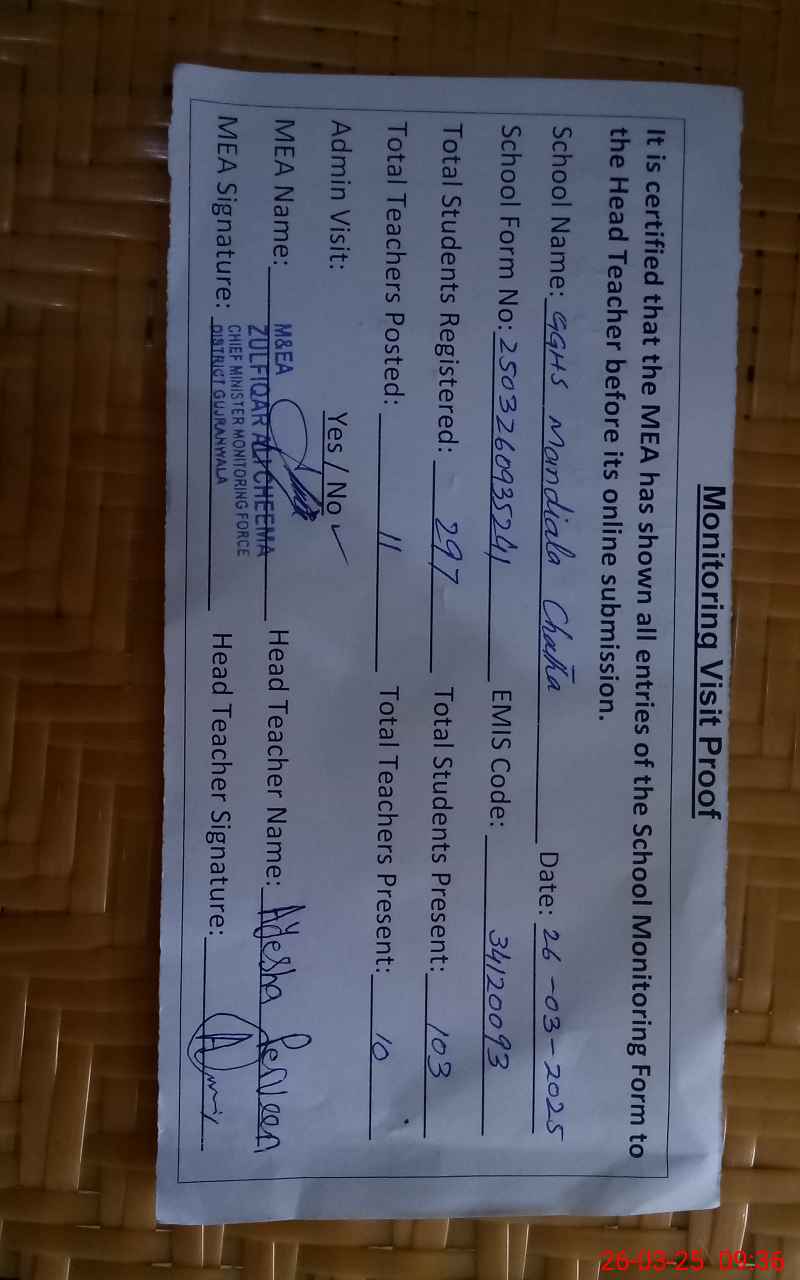 Monitoring Visit Proof
It is certified that the MEA has shown all entries of the School Monitoring Form to
the Head Teacher before its online submission.
School Name: GGHS Mandiala Chatha Date: 26-03-2025
School Form No: 2503260935241 EMIS Code: 34120093
Total Students Registered: 297 Total Students Present: 103
Total Teachers Posted: 11 Total Teachers Present: 10
Admin Visit: Yes / No ✓
MEA Name: Head Teacher Name: Ayesha Perveen
MEA Signature: Head Teacher Signature:
M&EA
ZULFIQAR ALI CHEEMA
CHIEF MINISTER MONITORING FORCE
DISTRICT GUJRANWALA
26-03-25 09:36